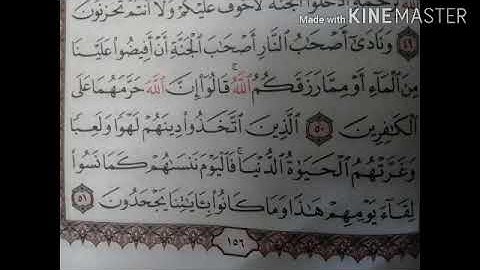 Made with KINEMASTER
ادْخُلُوا الْجَنَّةَ لَا خَوْفٌ عَلَيْكُمْ وَلَا أَنتُمْ تَحْزَنُونَ
٤٩ وَنَادَىٰ أَصْحَابُ النَّارِ أَصْحَابَ الْجَنَّةِ أَنْ أَفِيضُوا عَلَيْنَا
مِنَ الْمَاءِ أَوْ مِمَّا رَزَقَكُمُ اللَّهُ ۚ قَالُوا إِنَّ اللَّهَ حَرَّمَهُمَا عَلَى
الْكَافِرِينَ ٥٠ الَّذِينَ اتَّخَذُوا دِينَهُمْ لَهْوًا وَلَعِبًا
وَغَرَّتْهُمُ الْحَيَاةُ الدُّنْيَا ۚ فَالْيَوْمَ نَنسَاهُمْ كَمَا نَسُوا
لِقَاءَ يَوْمِهِمْ هَٰذَا وَمَا كَانُوا بِآيَاتِنَا يَجْحَدُونَ ٥١
١٥٦